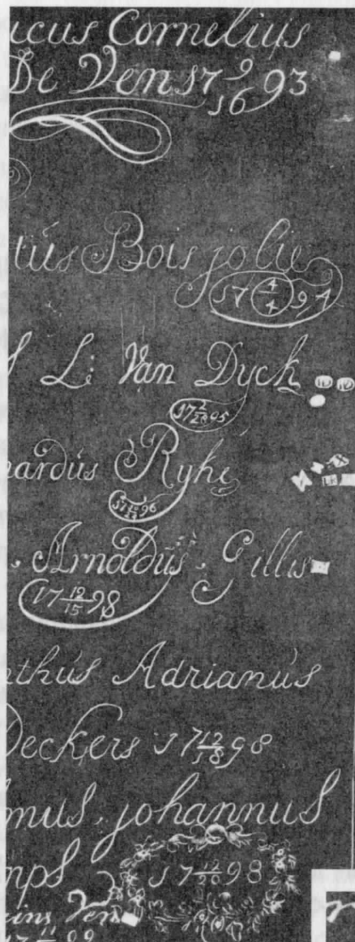 icus Cornelius
De Ven 17 9/16 93
tús Boisjolie
17 4/4 94
L: Van Dyck
17 2/28 95
nardús Ryke
96
Arnoldús. Gillis
17 12/15 98
nthús Adrianús
Deckers 17 12/18 98
mus. johannus
mps 17 98